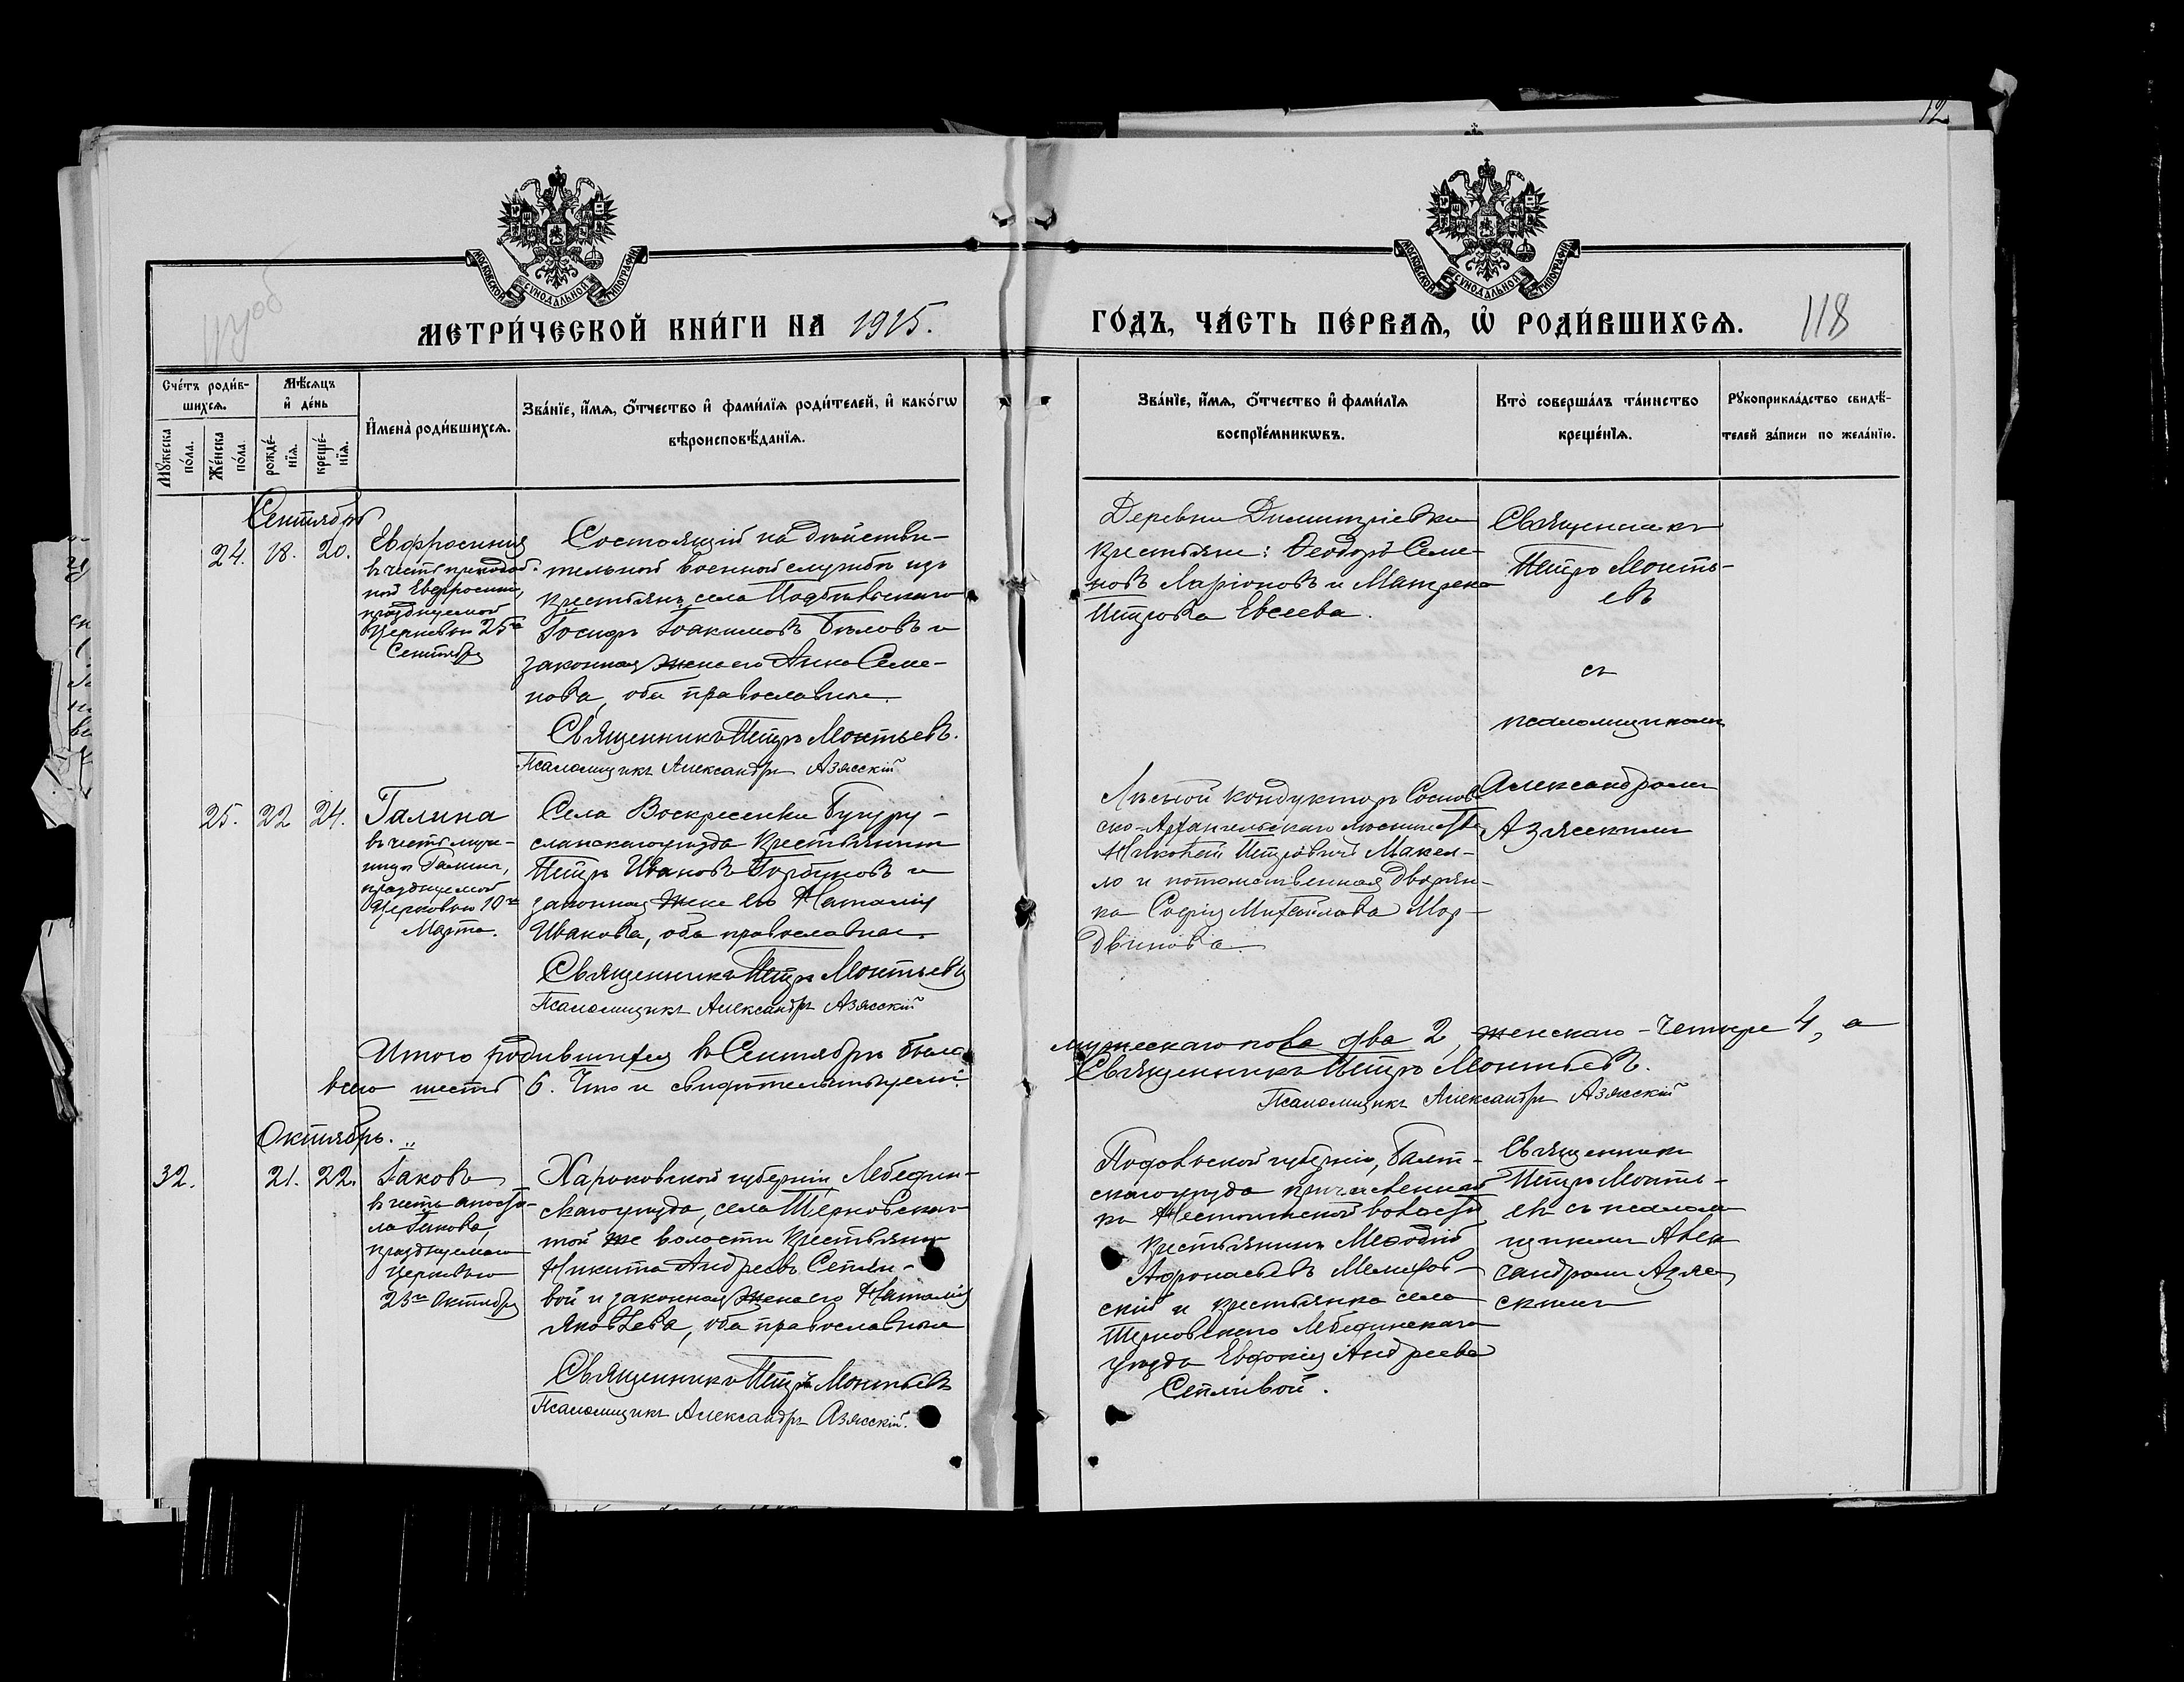 12
МОСКОВСКОЙ СѴНОДАЛЬНОЙ ТИПОГРАФІИ
МОСКОВСКОЙ СѴНОДАЛЬНОЙ ТИПОГРАФІИ
МЕТРИ́ЧЕСКОЙ КНИ́ГИ НА 1915.
ГО́ДЪ, ЧА́СТЬ ПЕ́РВАѦ, Ѡ҆ РОДИ́ВШИХСѦ.
118
Сче́тъ роди́в-
шихсѧ.
Мѣ́сѧцъ
и҆ де́нь
И҆мена̀ роди́вшихсѧ.
Зва́нїе, и҆́мѧ, ѻ҆́тчество и҆ фами́лїѧ роди́телей, и҆ како́гѡ
вѣроисповѣ́данїѧ.
Мꙋ́жеска
по́ла.
Же́нска
по́ла.
рожде́-
нїѧ.
креще́-
нїѧ.
Зва́нїе, и҆́мѧ, ѻ҆́тчество и҆ фами́лїѧ
воспрїе́мникѡвъ.
Кто̀ соверша́лъ та́инство
креще́нїѧ.
Рꙋкоприкла́дство свидѣ́-
телей за́писи по жела́нїю.
Сентябрь
24. 18. 20.
Евфросинія
въ честь преподоб-
ной Евфросиніи,
празднуемой
Церковью 25го
Сентября
Состоящій на дѣйстви-
тельной военной службѣ изъ
крестьянъ села
Іосифъ Іоакимовъ Бѣловъ и
законная жена его Анна Семе-
нова, оба православные.
Священникъ Петръ Монтьевъ.
Псаломщикъ Александръ Азясскій
Деревни Димитріевки
крестьяне: Ѳеодоръ Семе-
новъ Ларіоновъ и Матрена
Петрова Евсеева.
Священникъ
Петръ Монть-
евъ
съ
псаломщикомъ
Александромъ
Азясскимъ
25. 22 24.
Галина
въ честь муче-
ницы Галины,
празднуемой
Церковью 10го
Марта.
Села Воскресенки Бугуру-
сланскаго уѣзда крестьянинъ
Петръ Ивановъ Горбуновъ и
законная жена его Наталія
Иванова, оба православные.
Священникъ Петръ Монтьевъ
Псаломщикъ Александръ Азясскій
Лѣсной кондукторъ Соснов-
ско-Архангельскаго лѣсничества
Николай Петровичъ Макел-
ло и потомственная дворян-
ка Софія Михайлова Мор-
двинова.
Итого родившихся въ Сентябрѣ было
мужескаго пола два 2, женскаго - четыре 4, а
всего шесть 6. Что и свидѣтельствуемъ:
Священникъ Петръ Монтьевъ.
Псаломщикъ Александръ Азясскій
Октябрь.
32. 21. 22.
Іаковъ
въ честь апосто-
ла Іакова,
празднуемаго
Церковью
23го Октября
Харьковской губерніи Лебедин-
скаго уѣзда, села Терновскаго
той же волости крестьянинъ
Никита Андреевъ Сепли-
вой и законная жена его Наталія
Яковлева, оба православные
Священникъ Петръ Монтьевъ
Псаломщикъ Александръ Азясскій.
Подольской губерніи, Балт-
скаго уѣзда причисленный
къ волости
крестьянинъ Меѳодій
Афонасьевъ
скій и крестьянка села
Терновскаго Лебединскаго
уѣзда Евдокія Андреева
Сепливой.
Священникъ
Петръ Монть-
евъ съ псалом-
щикомъ Алек-
сандромъ Азяс-
скимъ